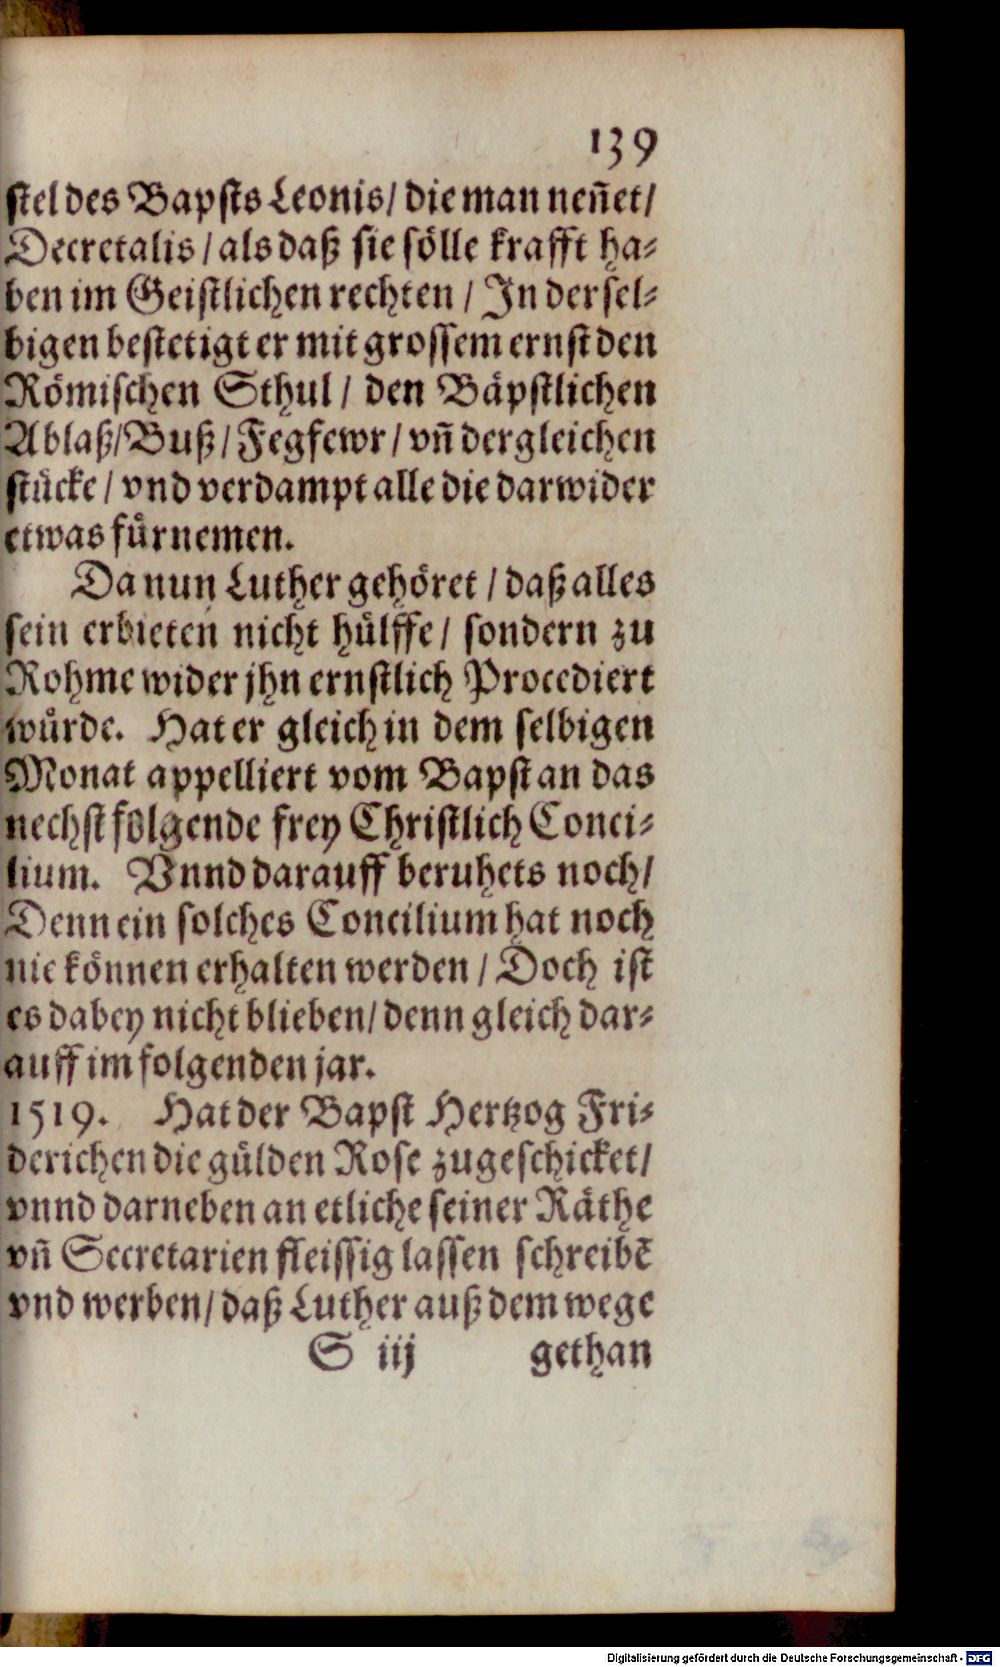 139
stel des Bapsts Leonis / die man nen̄et /
Decretalis / als daß sie sölle krafft ha⸗
ben im Geistlichen rechten / In dersel⸗
bigen bestetigt er mit grossem ernst den
Römischen Sthul / den Bäpstlichen
Ablaß / Buß / Fegfewr / vn̄ dergleichen
stücke / vnd verdampt alle die darwider
etwas fürnemen.
Da nun Luther gehöret / daß alles
sein erbieten nicht hülffe / sondern zu
Rohme wider jhn ernstlich Procediert
würde. Hat er gleich in dem selbigen
Monat appelliert vom Bapst an das
nechst folgende frey Christlich Conci⸗
lium. Vnnd darauff beruhets noch /
Denn ein solches Concilium hat noch
nie können erhalten werden / Doch ist
es dabey nicht blieben / denn gleich dar⸗
auff im folgenden jar.
1519. Hat der Bapst Hertzog Fri⸗
derichen die gülden Rose zugeschicket /
vnnd darneben an etliche seiner Räthe
vn̄ Secretarien fleissig lassen schreibē
vnd werben / daß Luther auß dem wege
S iij gethan
Digitalisierung gefördert durch die Deutsche Forschungsgemeinschaft - DFG